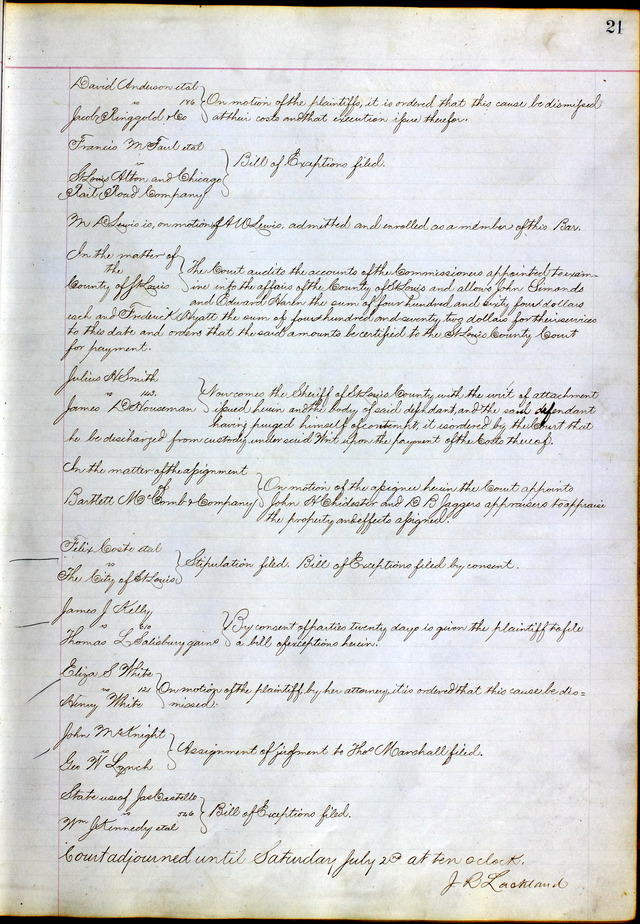 21
David Anderson et al
vs 186 On motion of the plaintiffs, it is ordered that this cause be dismissed
Jacob Ringgold & Co at their costs and that execution issue therefor.
Francis M Faul et al
vs Bill of Exceptions filed.
St Louis Alton and Chicago
Rail Road Company
M D Lewis is, on motion of A W Lewis, admitted and enrolled as a member of this Bar.
In the matter of
the The Court audits the accounts of the Commissioners appointed to exam-
County of St Louis ine into the affairs of the County of St Louis and allows John Simonds
and Edward the sum of four hundred and sixty four dollars
each and Frederick Hyatt the sum of four hundred and seventy two dollars for their services
to this date and orders that the said amounts be certified to the St Louis County Court
for payment.
Julius H Smith
vs 143. Now comes the Sheriff of St Louis County with the writ of attachment
James D Houseman issued herein and the body of said defendant, and the said defendant
having purged himself of contempt, it is ordered by the Court that
he be discharged from custody under said Writ upon the payment of the Costs thereof.
In the matter of the assignment
of On motion of the assignee herein the Court appoints
Bartlett McComb & Company John H Chidester and D B Jaggers appraisers to appraise
the property and effects assigned.
Felix Coste et al
vs Stipulation filed. Bill of Exceptions filed by consent.
The City of St Louis
James J Kelly
vs 610 By consent of parties twenty days is given the plaintiff to file
Thomas L Salisbury garns a bill of exceptions herein.
Eliza S White
vs 121 On motion of the plaintiff, by her attorney, it is ordered that this cause be dis=
Henry White missed.
John McKnight
vs Assignment of judgment to Thos Marshall filed.
Geo W Lynch
State use of Jas Castello
vs 546 Bill of Exceptions filed.
Wm J Kennedy et al
Court adjourned until Saturday July 2d at ten o'clock.
J R Lackland